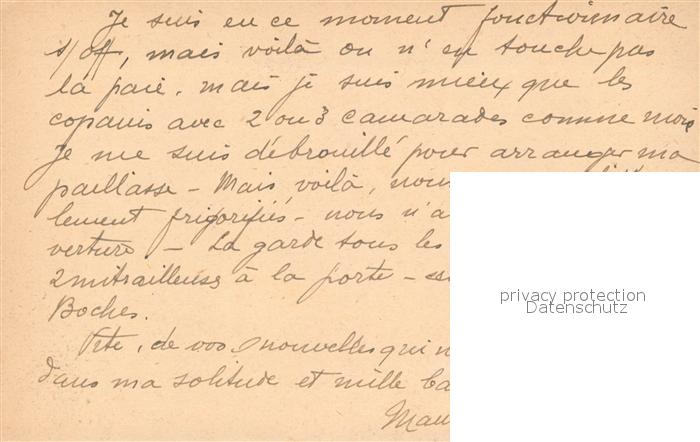 Je suis en ce moment fonctionnaire
s/off, mais voilà on n'en touche pas
la paie. mais je suis mieux que les
copains avec 2 ou 3 camarades comme moi
Je me suis débrouillé pour arranger ma
paillasse - Mais voilà, nous
lement frigorifiés - nous n'a
verture - La garde tous les
2 mitrailleuses à la porte -
Boches.
Vite, de vos nouvelles qui
dans ma solitude et mille ba
Mau
privacy protection
Datenschutz